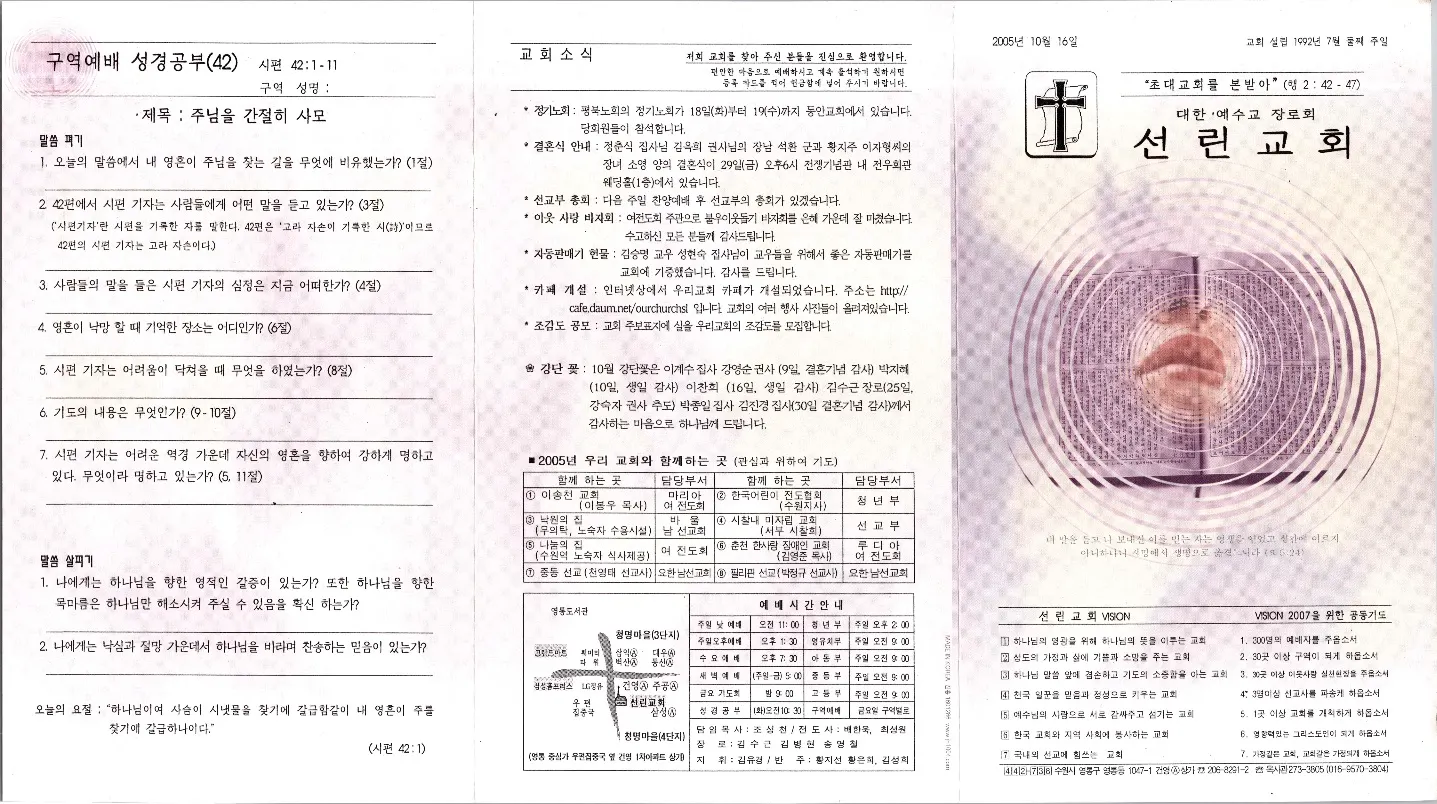 구역예배 성경공부(42)  시편 42:1-11
구역 성명 :
·제목 : 주님을 간절히 사모
말씀 펴기
1. 오늘의 말씀에서 내 영혼이 주님을 찾는 길을 무엇에 비유했는가? (1절)
2. 42편에서 시편 기자는 사람들에게 어떤 말을 듣고 있는가? (3절)
('시편기자'란 시편을 기록한 자를 말한다. 42편은 '고라 자손이 기록한 시(詩)'이므로
42편의 시편 기자는 고라 자손이다.)
3. 사람들의 말을 들은 시편 기자의 심정은 지금 어떠한가? (4절)
4. 영혼이 낙망 할 때 기억한 장소는 어디인가? (6절)
5. 시편 기자는 어려움이 닥쳤을 때 무엇을 하였는가? (8절)
6. 기도의 내용은 무엇인가? (9-10절)
7. 시편 기자는 어려운 역경 가운데 자신의 영혼을 향하여 강하게 명하고
있다. 무엇이라 명하고 있는가? (5, 11절)
말씀 살피기
1. 나에게는 하나님을 향한 영적인 갈증이 있는가? 또한 하나님을 향한
목마름은 하나님만 해소시켜 주실 수 있음을 확신 하는가?
2. 나에게는 낙심과 절망 가운데서 하나님을 바라며 찬송하는 믿음이 있는가?
오늘의 요절 : "하나님이여 사슴이 시냇물을 찾기에 갈급함같이 내 영혼이 주를
찾기에 갈급하나이다."
(시편 42:1)
교회소식
저희 교회를 찾아 주신 분들을 진심으로 환영합니다.
편안한 마음으로 예배하시고 계속 출석하기 원하시면
등록 카드를 적어 헌금함에 넣어 주시기 바랍니다.
* 정기노회 : 평북노회의 정기노회가 18일(화)부터 19(수)까지 동안교회에서 있습니다.
당회원들이 참석합니다.
* 결혼식 안내 : 정춘식 집사님 김옥희 권사님의 장남 석환 군과 황지주 이자형씨의
장녀 소영 양의 결혼식이 29일(금) 오후6시 전쟁기념관 내 전우회관
웨딩홀(1층)에서 있습니다.
* 선교부 총회 : 다음 주일 찬양예배 후 선교부의 총회가 있겠습니다.
* 이웃 사랑 바자회 : 여전도회 주관으로 불우이웃돕기 바자회를 은혜 가운데 잘 마쳤습니다.
수고하신 모든 분들께 감사드립니다.
* 자동판매기 헌물 : 김승명 교우 성현숙 집사님이 교우들을 위해서 좋은 자동판매기를
교회에 기증했습니다. 감사를 드립니다.
* 카페 개설 : 인터넷상에서 우리교회 카페가 개설되었습니다. 주소는 http://
cafe.daum.net/ourchurchsl 입니다. 교회의 여러 행사 사진들이 올려져있습니다.
* 조감도 공모 : 교회 주보표지에 실을 우리교회의 조감도를 모집합니다.
❀ 강단 꽃 : 10월 강단꽃은 이계수 집사 강영순 권사 (9일, 결혼기념 감사) 박지혜
(10일, 생일 감사) 이찬희 (16일, 생일 감사) 김수근 장로(25일,
강숙자 권사 추도) 박종일 집사 김진경 집사(30일 결혼기념 감사)께서
감사하는 마음으로 하나님께 드립니다.
■ 2005년 우리 교회와 함께하는 곳 (관심과 위하여 기도)
함께 하는 곳 담당부서 함께 하는 곳 담당부서
① 이송천 교회 (이봉우 목사) 마리아 여 전도회 ② 한국어린이 전도협회 (수원지사) 청 년 부
③ 낙원의 집 (무의탁, 노숙자 수용시설) 바 울 남 선교회 ④ 시찰내 미자립 교회 (서부 시찰회) 선 교 부
⑤ 나눔의 집 (수원역 노숙자 식사제공) 여 전도회 ⑥ 춘천 한사랑 장애인 교회 (김영준 목사) 루 디 아 여 전도회
⑦ 중동 선교 (천영태 선교사) 요한 남선교회 ⑧ 필리핀 선교 (박정규 선교사) 요한 남선교회
영통도서관
청명마을(3단지)
삼익Ⓐ 대우Ⓐ
벽산Ⓐ 동신Ⓐ
LG정유 건영Ⓐ 주공Ⓐ
우 편
집중국
선린교회
삼성Ⓐ
청명마을(4단지)
(영통 중심가 우편집중국 옆 건영 1차아파트 상가)
예 배 시 간 안 내
주일 낮 예배 오전 11:00 청 년 부 주일 오후 2:00
주일오후예배 오후 1:30 영유치부 주일 오전 9:00
수 요 예 배 오후 7:30 아 동 부 주일 오전 9:00
새 벽 예 배 (주일-금) 5:00 중 등 부 주일 오전 9:00
금요 기도회 밤 9:00 고 등 부 주일 오전 9:00
성 경 공 부 (화)오전10:30 구역예배 금요일 구역별로
담 임 목 사 : 조 성 천 / 전 도 사 : 배한욱, 최성원
장 로 : 김 수 근 김 병 현 송 영 철
지 휘 : 김유경 / 반 주 : 황지선 황은희, 김성희
2005년 10월 16일
교회 설립 1992년 7월 둘째 주일
"초대교회를 본받아" (행 2 : 42 - 47)
대한·예수교 장로회
선린교회
내 말을 듣고 나 보내신 이를 믿는 자는 영생을 얻었고 심판에 이르지
아니하나니 사망에서 생명으로 옮겼느니라 (요 5:24)
선 린 교 회 VISION
1 하나님의 영광을 위해 하나님의 뜻을 이루는 교회
2 성도의 가정과 삶에 기쁨과 소망을 주는 교회
3 하나님 말씀 앞에 겸손하고 기도의 소중함을 아는 교회
4 천국 일꾼을 믿음과 정성으로 키우는 교회
5 예수님의 사랑으로 서로 감싸주고 섬기는 교회
6 한국 교회와 지역 사회에 봉사하는 교회
7 국내외 선교에 힘쓰는 교회
VISION 2007을 위한 공동기도
1. 300명의 예배자를 주옵소서
2. 30곳 이상 구역이 되게 하옵소서
3. 30곳 이상 이웃사랑 실천현장을 주옵소서
4. 3명이상 선교사를 파송케 하옵소서
5. 1곳 이상 교회를 개척하게 하옵소서
6. 영향력있는 그리스도인이 되게 하옵소서
7. 가정같은 교회, 교회같은 가정되게 하옵소서
442-738 수원시 영통구 영통동 1047-1 건영Ⓐ상가 ☎ 206-8291~2 ☎ 목사관273-3805 (016-9570-3804)